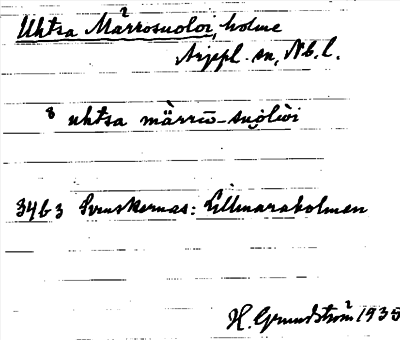 Uhtsa Märrosuoloi, holme
Arjepl. sn, Nb. l.
8 uhtsa màrrᴏ̄-suo̯lòi
3463 Svenskarnas: Lillmaraholmen
H. Grundström 1935